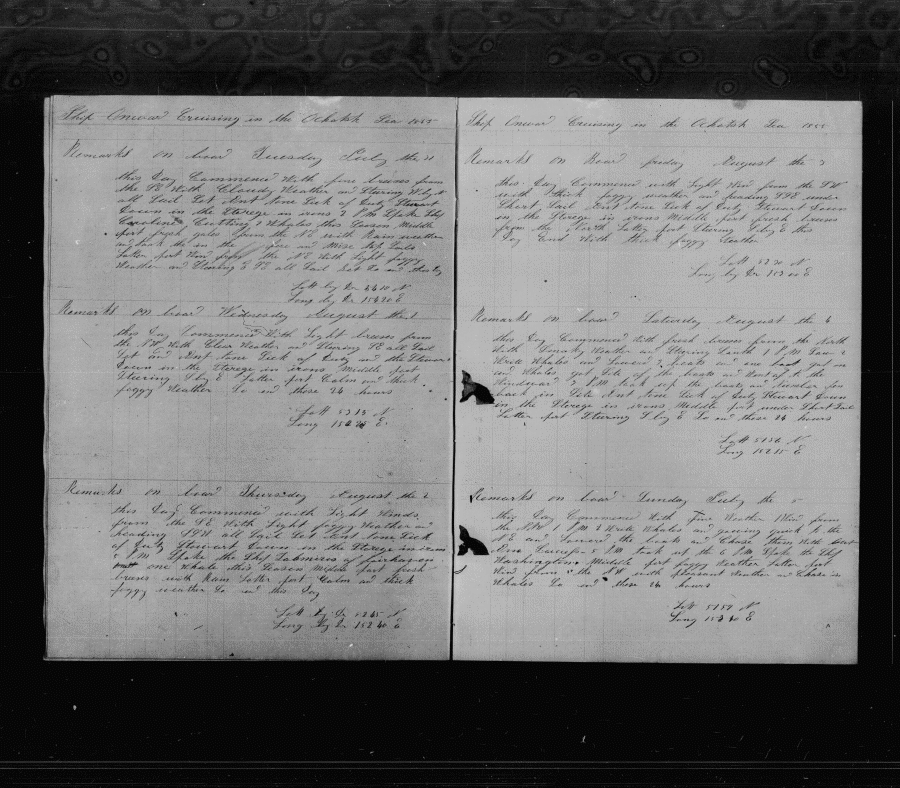 Ship Onward Cruising in the Ochotsk Sea 1855
Remarks on board Tuesday July the 31
this Day Commenced With fine breeses from
the SE With Cloudy Weather and Stering W by N
all Sail Set Ant tone Sick of Duty Stewart
Down in the Sterege in irons 2 PM Spoke Ship
Caroline Cutting 2 Whales this Season Middle
part fresh gales from the NE with Rain weather
Latter part Wind from the NE With Light foggy
Weather and Stearing
Latt by Dr 54 10 N
Long by Dr 154 20 E
Remarks on board Wednesday August the 1
this Day Commenced With Light breeses from
the SW With Clear Weather and Stering SE all Sail
Set and Ant tone Sick of Duty and the Stewart
Down in the Sterege in irons Middle part
Stering S by E Latter part Calm and thick
foggy Weather So ends these 24 hours
Latt 53 18 N
Long E
Remarks on board Thursday August the 2
this Day Commenced with Light Winds
from the SE With Light foggy Weather and
heading SSW all Sail Set Ant tone Sick
of Duty Stewart Down in the Sterege in irons
PM Spoke the Ship of fairhaven
one Whale this Season Midle part fresh
breses with Rain Latter part Calm and thick
foggy weather So ends this Day
Latt by Dr 52 45 N
Long by Dr 152 40 E
Ship Onward Cruising in the Ochotsk Sea 1855
Remarks on Board friday August the 3
this Day Commenced with Light Wind from the SW
with thick foggy weather and heading SSE under
Short Sail Ant tone Sick of Duty Stewart Down
in the Sterege in irons Middle part fresh breeses
from the North Latter part Stering S by E this
Day Ends With thick foggy Weather
Latt 52 20 N
Long by Dr 152 00 E
Remarks on board Saturday August the 4
this Day Commenced With fresh breeses from the North
With Weather and Stering South 1 PM Saw 2
Write Whales and Lowered 2 boats and
one Whales got Site of the boats and Went of to the
Windward 2 PM took up the boats and
back in Site Ant tone Sick of Duty Stewart Down
in the Sterege in irons Middle part under Short Sail
Latter part Stering S by E So ends these 24 hours
Latt 51 56 N
Long 152 15 E
Remarks on board Sunday July the 5
this Day Commenced With Fine Weather Wind from
the NW 1 PM 2 Write Whales going quick to the
NE and Lowered the boats and Chase them With out
5 PM took up the 6 PM Spoke the Ship
Washington Middle part foggy Weather Latter part
Wind from the NW with pleasant Weather and Chaseing
Whales So ends these 24 hours
Latt 51 51 N
Long 152 40 E